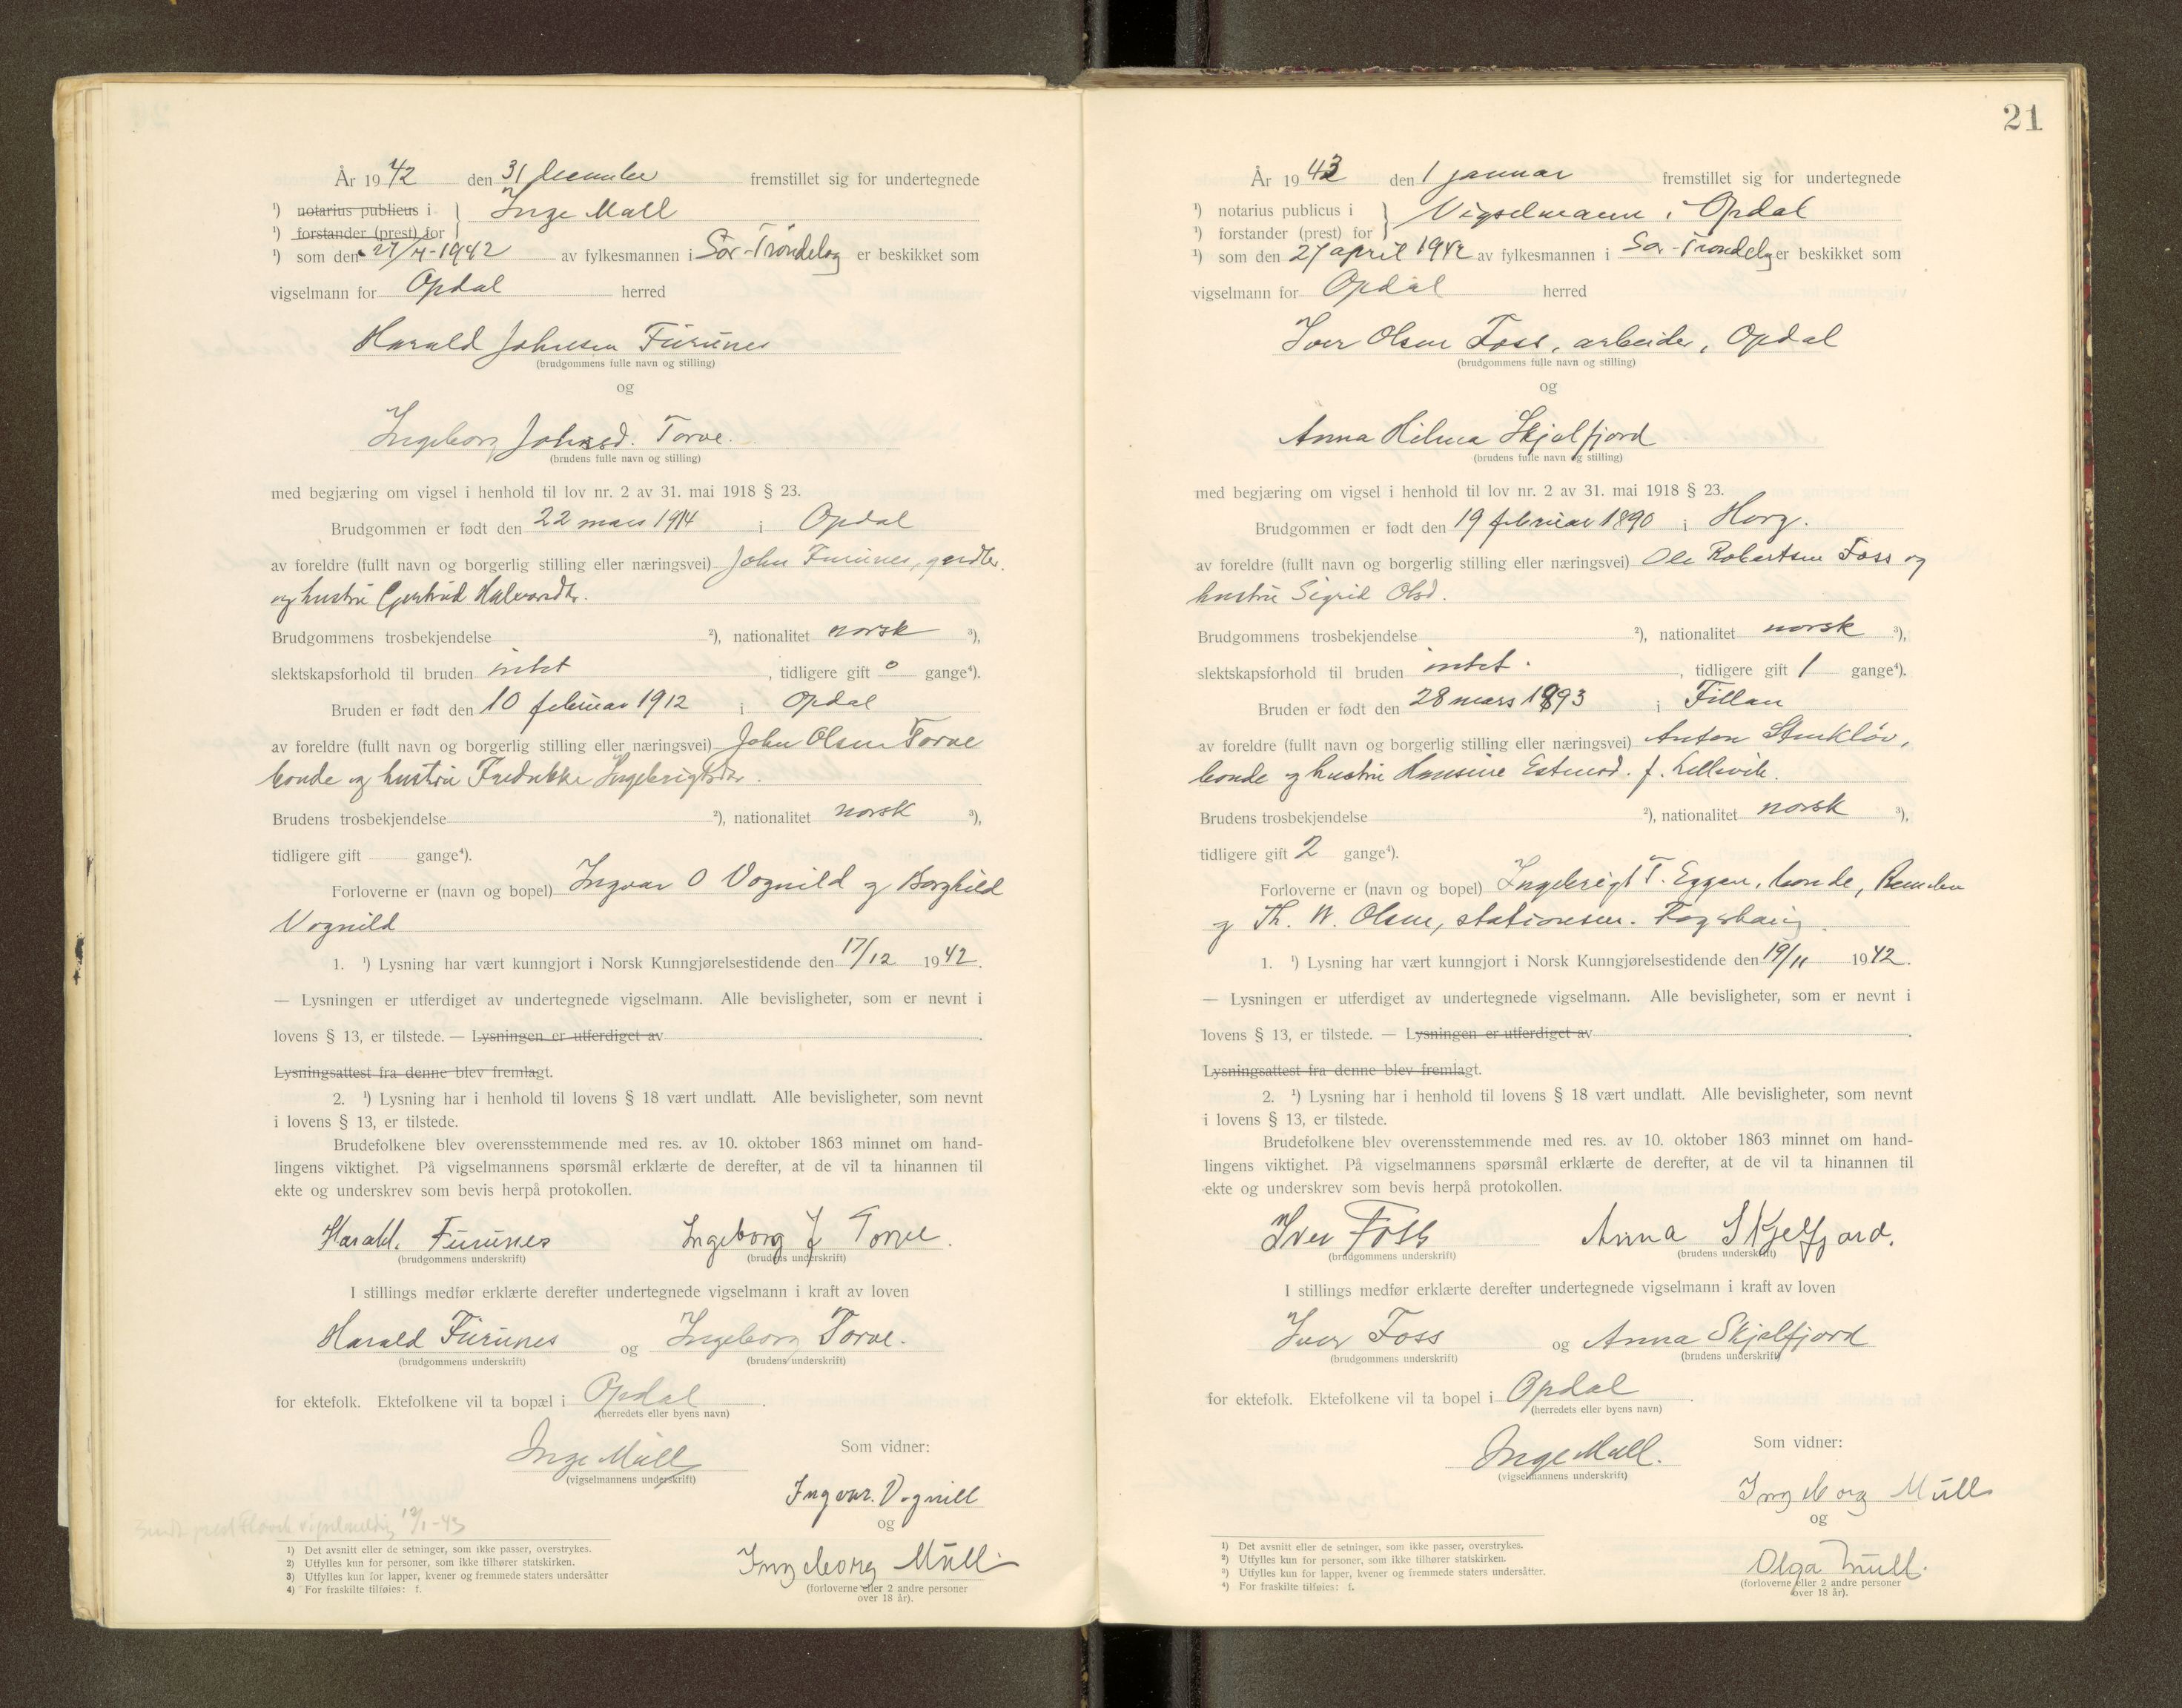 År 1942 den 31 December fremstillet sig for undertegnede
¹) notarius publicus i } Inge Mall
¹) forstander (prest) for
¹) som den 27/4-1942 av fylkesmannen i Sør-Trøndelag er beskikket som
vigselmann for Opdal herred
Harald Johnsen Furunes
(brudgommens fulle navn og stilling)
og
Ingeborg Johnsd. Torve.
(brudens fulle navn og stilling)
med begjæring om vigsel i henhold til lov nr. 2 av 31. mai 1918 § 23.
Brudgommen er født den 22 mars 1914 i Opdal
av foreldre (fullt navn og borgerlig stilling eller næringsvei) John Furunes, grdbr.
og hustru Gjertrud Halvardtr.
Brudgommens trosbekjendelse ²), nationalitet norsk ³),
slektskapsforhold til bruden intet , tidligere gift 0 gange⁴).
Bruden er født den 10 februar 1912 i Opdal
av foreldre (fullt navn og borgerlig stilling eller næringsvei) John Olsen Torve
bonde og hustru Fredrikke Ingebrigtsdtr.
Brudens trosbekjendelse ²), nationalitet norsk ³),
tidligere gift gange⁴).
Forloverne er (navn og bopel) Ingvar O Vognild og Borghild
Vognild
1. ¹) Lysning har vært kunngjort i Norsk Kunngjørelsestidende den 17/12 1942.
— Lysningen er utferdiget av undertegnede vigselmann. Alle bevisligheter, som er nevnt i
lovens § 13, er tilstede. — Lysningen er utferdiget av .
Lysningsattest fra denne blev fremlagt.
2. ¹) Lysning har i henhold til lovens § 18 vært undlatt. Alle bevisligheter, som nevnt
i lovens § 13, er tilstede.
Brudefolkene blev overensstemmende med res. av 10. oktober 1863 minnet om hand-
lingens viktighet. På vigselmannens spørsmål erklærte de derefter, at de vil ta hinannen til
ekte og underskrev som bevis herpå protokollen.
Harald. Furunes Ingeborg J Torve.
(brudgommens underskrift) (brudens underskrift)
I stillings medfør erklærte derefter undertegnede vigselmann i kraft av loven
Harald Furunes og Ingeborg Torve.
(brudgommens underskrift) (brudens underskrift)
for ektefolk. Ektefolkene vil ta bopæl i Opdal .
(herredets eller byens navn)
Inge Mall
(vigselmannens underskrift)
Som vidner:
Ingvar. Vognill
og
Ingeborg Mull.
(forloverne eller 2 andre personer
over 18 år).
12/1-43
1) Det avsnitt eller de setninger, som ikke passer, overstrykes.
2) Utfylles kun for personer, som ikke tilhører statskirken.
3) Utfylles kun for lapper, kvener og fremmede staters undersåtter
4) For fraskilte tilføies: f.
21
År 1943 den 1 januar fremstillet sig for undertegnede
¹) notarius publicus i } Vigselmann i Opdal
¹) forstander (prest) for
¹) som den 27 april 1942 av fylkesmannen i Sør-Trøndelag er beskikket som
vigselmann for Opdal herred
Iver Olsen Foss, arbeider, Opdal
(brudgommens fulle navn og stilling)
og
Anna Hilma Skjelfjord
(brudens fulle navn og stilling)
med begjæring om vigsel i henhold til lov nr. 2 av 31. mai 1918 § 23.
Brudgommen er født den 19 februar 1890 i Horg.
av foreldre (fullt navn og borgerlig stilling eller næringsvei) Ole Robertsen Foss og
hustru Sigrid Olsd.
Brudgommens trosbekjendelse ²), nationalitet norsk ³),
slektskapsforhold til bruden intet. , tidligere gift 1 gange⁴).
Bruden er født den 28 mars 1893 i Fillan
av foreldre (fullt navn og borgerlig stilling eller næringsvei) Anton
bonde og hustru Hansine f.
Brudens trosbekjendelse ²), nationalitet norsk ³),
tidligere gift 2 gange⁴).
Forloverne er (navn og bopel) Ingebrigt T. Eggen, bonde,
og Th. W. Olsen, stationsm. Fagerhaug.
1. ¹) Lysning har vært kunngjort i Norsk Kunngjørelsestidende den 19/11 1942.
— Lysningen er utferdiget av undertegnede vigselmann. Alle bevisligheter, som er nevnt i
lovens § 13, er tilstede. — Lysningen er utferdiget av .
Lysningsattest fra denne blev fremlagt.
2. ¹) Lysning har i henhold til lovens § 18 vært undlatt. Alle bevisligheter, som nevnt
i lovens § 13, er tilstede.
Brudefolkene blev overensstemmende med res. av 10. oktober 1863 minnet om hand-
lingens viktighet. På vigselmannens spørsmål erklærte de derefter, at de vil ta hinannen til
ekte og underskrev som bevis herpå protokollen.
Iver Foss Anna Skjelfjord.
(brudgommens underskrift) (brudens underskrift)
I stillings medfør erklærte derefter undertegnede vigselmann i kraft av loven
Iver Foss og Anna Skjelfjord
(brudgommens underskrift) (brudens underskrift)
for ektefolk. Ektefolkene vil ta bopel i Opdal .
(herredets eller byens navn)
Inge Mall.
(vigselmannens underskrift)
Som vidner:
Ingeborg Mull
og
Olga Mull.
(forloverne eller 2 andre personer
over 18 år).
¹) Det avsnitt eller de setninger, som ikke passer, overstrykes.
²) Utfylles kun for personer, som ikke tilhører statskirken.
³) Utfylles kun for lapper, kvener og fremmede staters undersåtter.
⁴) For fraskilte tilføies: f.